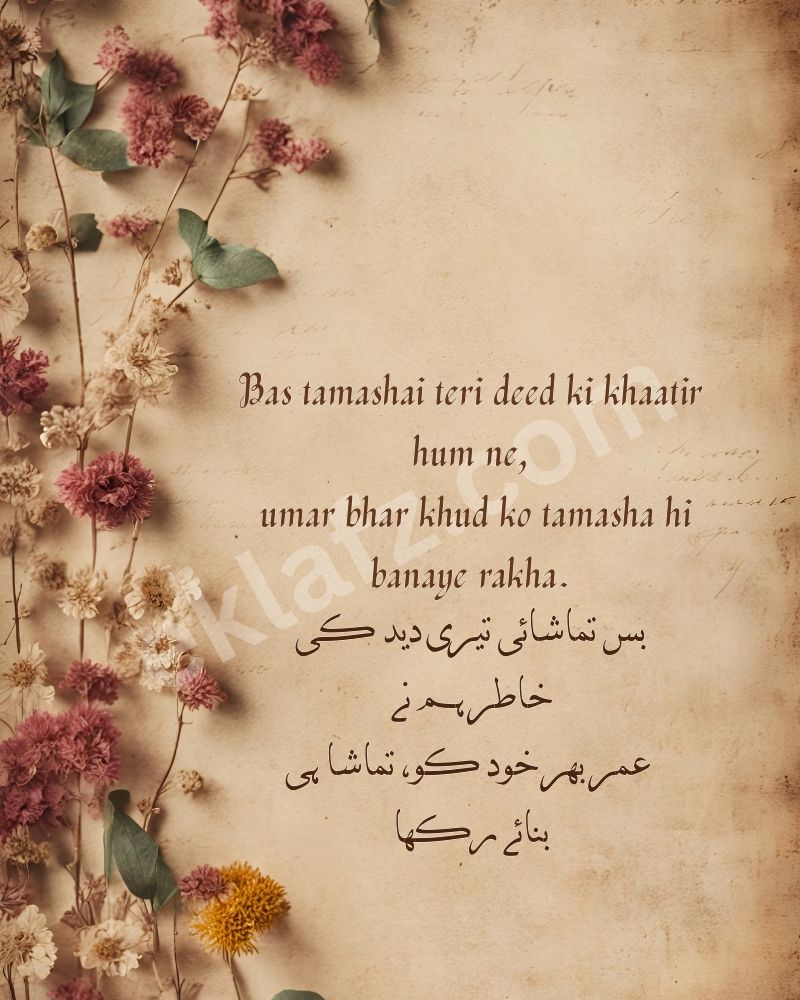 Bas tamashai teri deed ki khaatir
hum ne,
umar bhar khud ko tamasha hi
banaye rakha.
بس تماشائی تیری دید کی
خاطر ہم نے
عمر بھر خود کو، تماشا ہی
بنائے رکھا
klafz.com